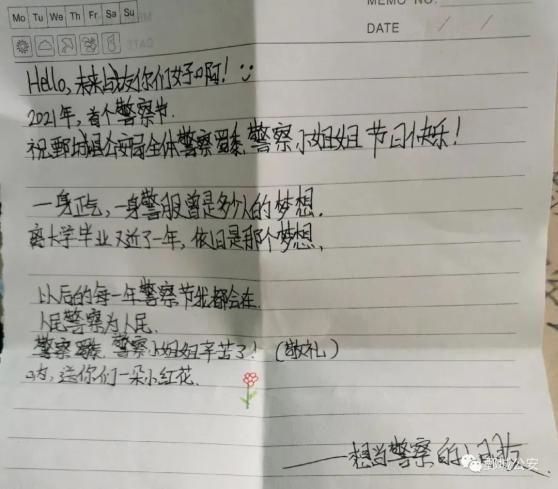 Mo Tu We Th Fr Sa Su
MEMO NO.
DATE / /
Hello,未来战友你们好啊!
2021年,首个警察节.
祝鄄城县公安局全体警察蜀黍,警察小姐姐节日快乐!
一身正气,一身警服曾是多少人的梦想.
离大学毕业又近了一年,依旧是那个梦想,
以后的每一年警察节我都会在.
人民警察为人民.
警察蜀黍,警察小姐姐辛苦了!(敬礼)
送你们一朵小红花.
——想当警察的小
鄄城公安